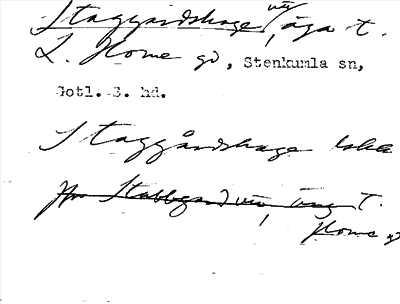 Staggårdshage, äga t.
L. Home gd, Stenkumla sn,
Gotl. S. hd.
Staggårdshage
Stabbgard, äng t.
Home gd